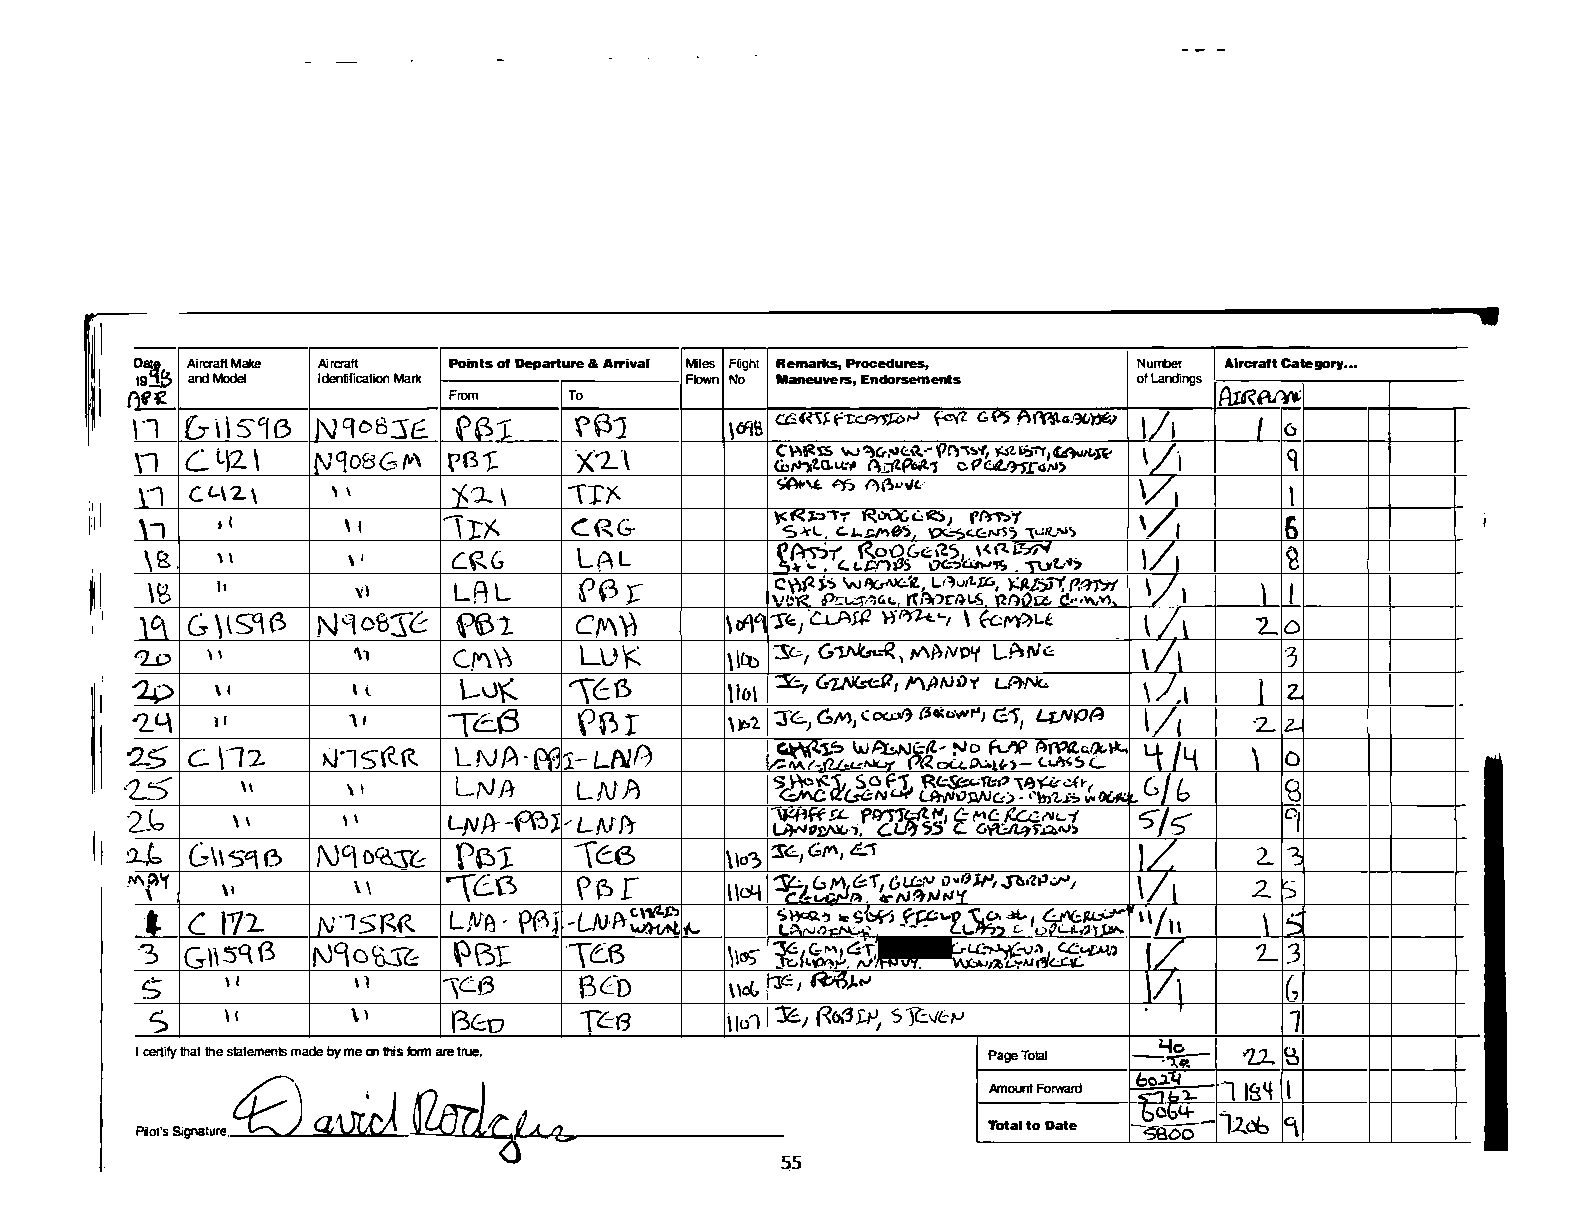 Date Aircraft Make Aircraft Points of Departure & Arrival Miles Flight Remarks, Procedures, Number Aircraft Category...
1995 and Model Identification Mark Flown No Maneuvers, Endorsements of Landings
APR From To
17 G1159B N908JE PBI PBI 1098 CERTIFICATION FOR GPS APPROACHES 1/1 1 0
17 C421 N908GM PBI X21 CHRIS WAGNER-PATSY, KRISTY, LAURIE 1/1 9
AIRPORT OPERATIONS
17 C421 " X21 TIX SAME AS ABOVE 1/1 1
17 " " TIX CRG KRISTY RODGERS, PATSY 1/1 6
S+L, CLIMBS, DESCENTS TURNS
18 " " CRG LAL PATSY RODGERS, KRISTY 1/1 8
S+L, CLIMBS DESCENTS, TURNS
18 " " LAL PBI CHRIS WAGNER, LAURIE, KRISTY, PATSY 1/1 1 1
VOR RADIALS, RADIO COMM.
19 G1159B N908JE PBI CMH 1099 JE, CLAIR HAZEL, 1 FEMALE 1/1 2 0
20 " " CMH LUK 1100 JE, GINGER, MANDY LANE 1/1 3
20 " " LUK TEB 1101 JE, GINGER, MANDY LANE 1/1 1 2
24 " " TEB PBI 1102 JE, GM, BROWN, ET, LINDA 1/1 2 2
25 C172 N75RR LNA-PBI-LNA CHRIS WAGNER-NO FLAP APPROACH, 4/4 1 0
EMERGENCY PROCEDURES-CLASS C
25 " " LNA LNA SHORT, SOFT, REJECTED TAKEOFF, 6/6 8
EMERGENCY LANDINGS-CHRIS WAGNER
26 " " LNA-PBI-LNA TRAFFIC PATTERN, EMERGENCY 5/5 9
LANDING, CLASS C OPERATIONS
26 G1159B N908JE PBI TEB 1103 JE, GM, ET 1/ 2 3
MAY " " TEB PBI 1104 JE, GM, ET, GLEN DUBIN, JORDAN, 1/1 2 5
CELINA, & NANNY
1 C172 N75RR LNA-PBI-LNA CHRIS WAGNER SHORT & SOFT FIELD EMERGENCY 11/11 1 5
LANDING, CLASS C OPERATION
3 G1159B N908JE PBI TEB 1105 JE, GM, ET GLEN, EVA, CELINA 1/ 2 3
JORDAN, NANNY.
5 " " TEB BED 1106 JE, ROBIN 1/1 6
5 " " BED TEB 1107 JE, ROBIN, STEVEN 7
I certify that the statements made by me on this form are true. Page Total 40 38 22 8
Amount Forward 6024 5762 7184 1
Pilot's Signature David Rodgers Total to Date 6064 5800 7206 9
55